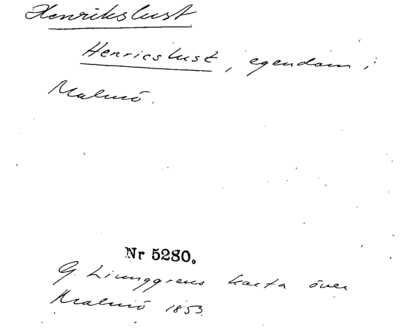 Henrikslust
Henricslust, egendom i
Malmö.
Nr 5280.
G. Ljunggrens karta över
Malmö 1853.